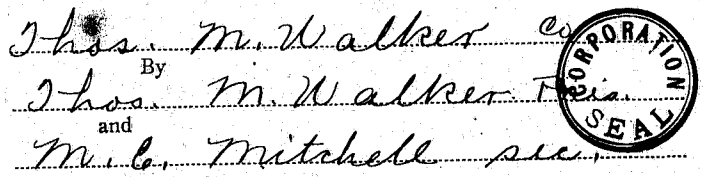 Thos. M. Walker Co
By
Thos. M. Walker Pres.
and
M. C. Mitchell sec.
CORPORATION
SEAL